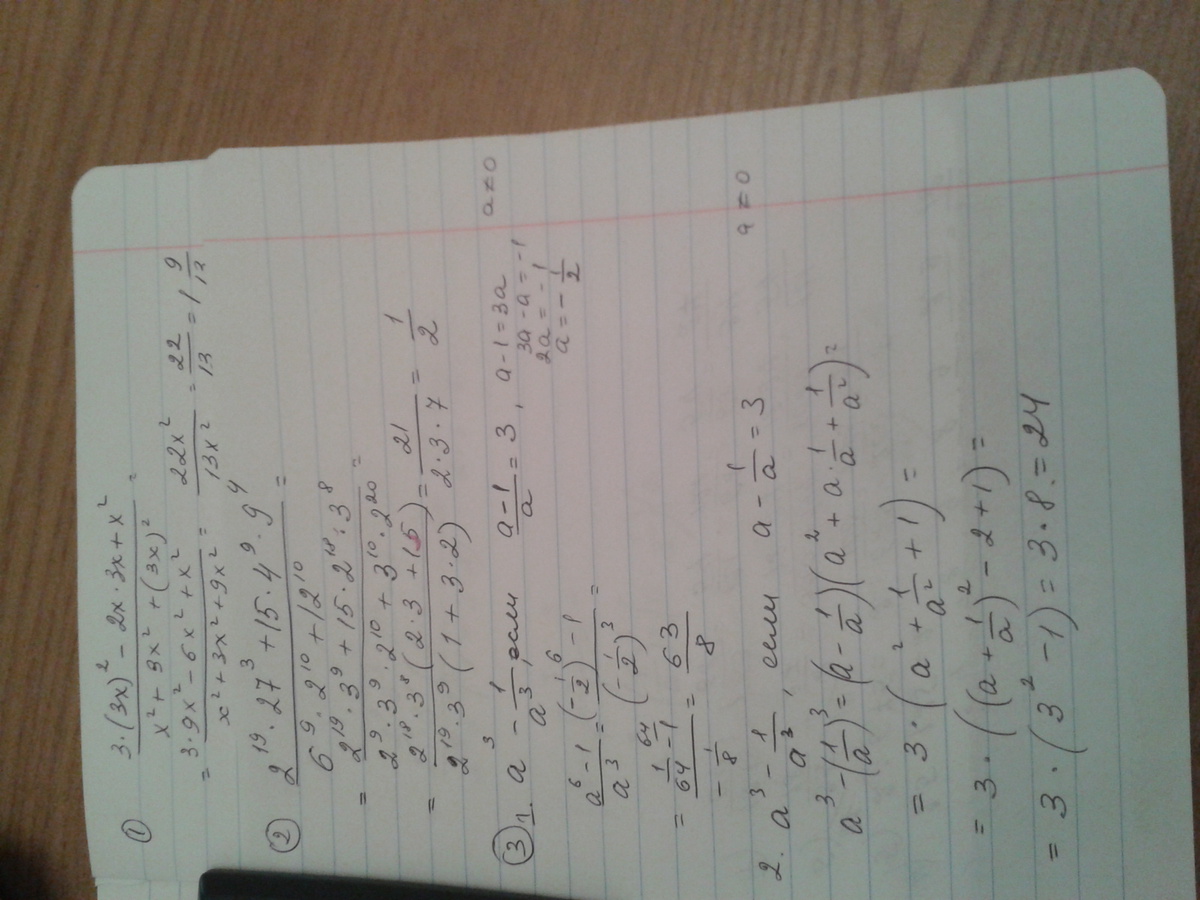 ① 3·(3x)² - 2x·3x + x² / x² + 9x² + (3x)² =
= 3·9x² - 6x² + x² / x² + 3x² + 9x² = 22x² / 13x² = 22/13 = 1 9/13
② 2¹⁹·27³ + 15·4⁹·9⁴ / 6⁹·2¹⁰ + 12¹⁰ =
= 2¹⁹·3⁹ + 15·2¹⁸·3⁸ / 2⁹·3⁹·2¹⁰ + 3¹⁰·2²⁰ =
= 2¹⁸·3⁸(2·3 + 15) / 2¹⁹·3⁹(1 + 3·2) = 21 / 2·3·7 = 1/2
③ 1. a³ - 1/a³, если a-1/a = 3, a-1=3a a≠0
3a-a=-1
2a=-1
a=-1/2
a⁶-1 / a³ = (-1/2)⁶-1 / (-1/2)³ =
= 1/64 - 1 / -1/8 = 63/8
2. a³ - 1/a³, если a - 1/a = 3 a≠0
a³-(1/a)³=(a-1/a)(a²+a·1/a+1/a²)=
= 3·(a²+1/a²+1) =
= 3·((a+1/a)²-2+1) =
= 3·(3²-1) = 3·8 = 24